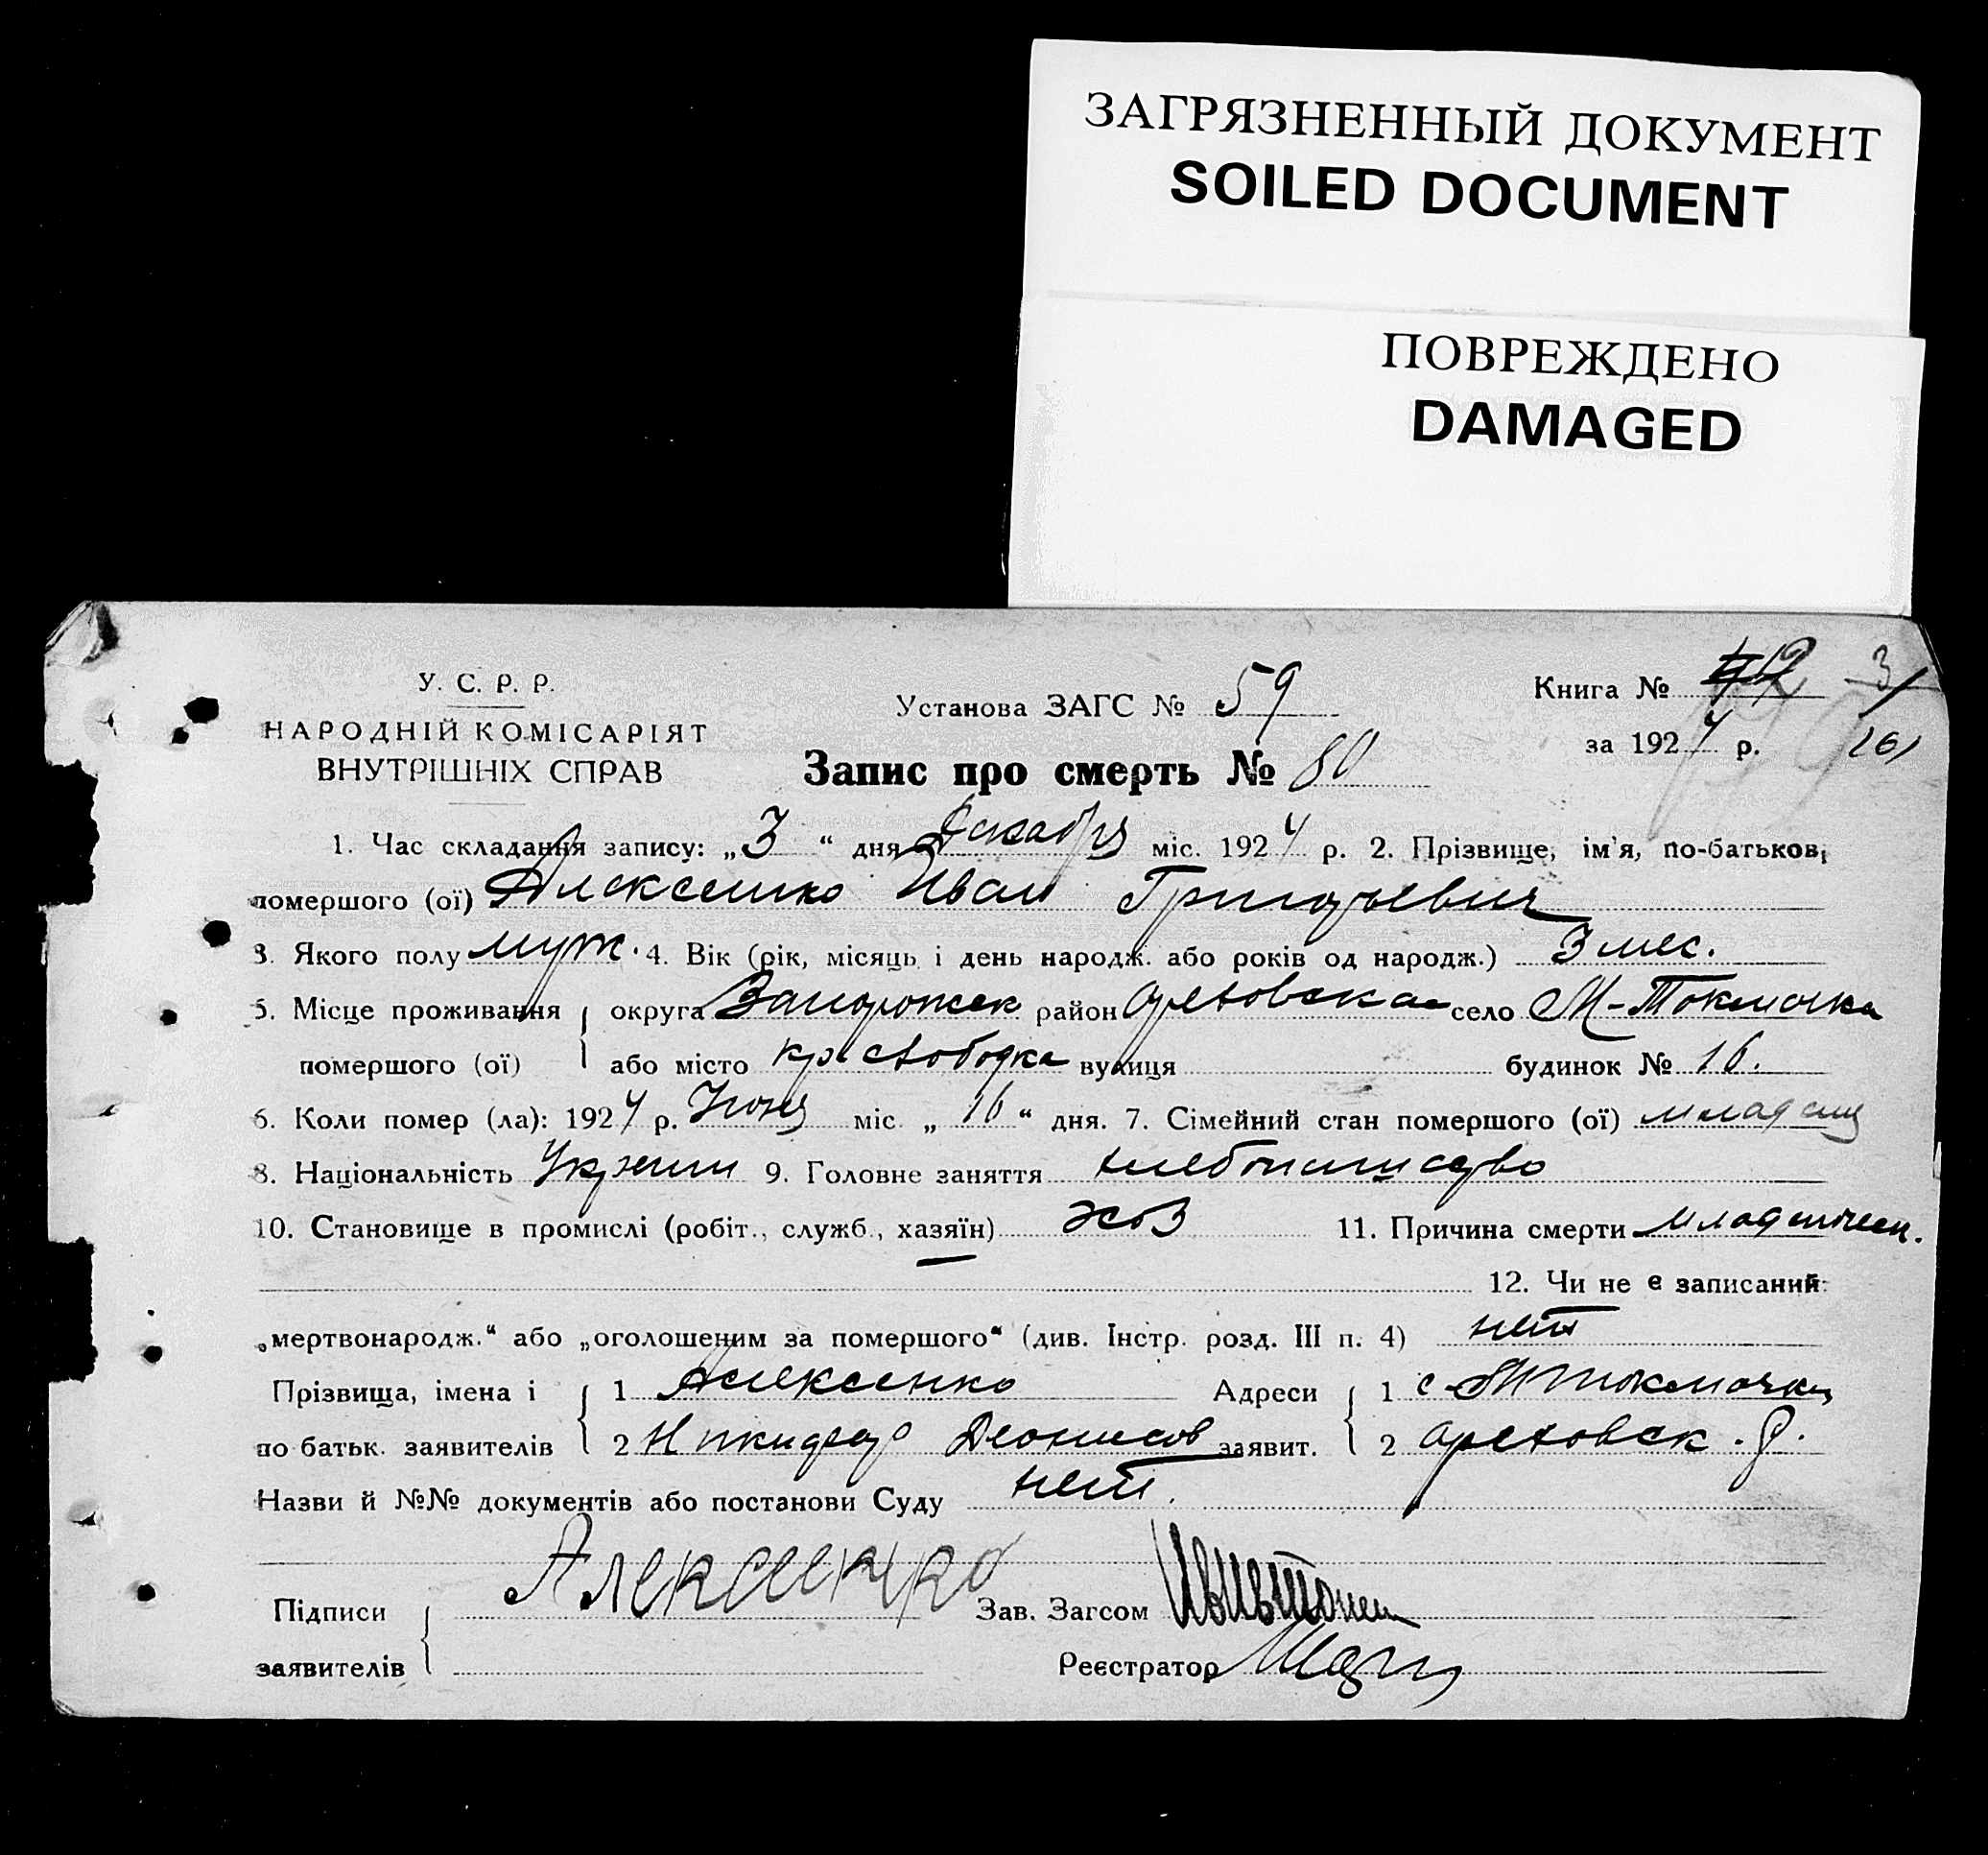 ЗАГРЯЗНЕННЫЙ ДОКУМЕНТ
SOILED DOCUMENT
ПОВРЕЖДЕНО
DAMAGED
У. С. Р. Р.
НАРОДНІЙ КОМІСАРІЯТ
ВНУТРІШНІХ СПРАВ
Установа ЗАГС № 59
Книга №
за 1924 р.
Запис про смерть № 80
1. Час складання запису: „3“ дня Декабря міс. 1924 р. 2. Прізвище, ім'я, по-батькові
помершого (ої) Алексенко Иван Григорьевич
3. Якого полу муж. 4. Вік (рік, місяць і день народж. або років од народж.) 3 мес.
5. Місце проживання округа Запорожск район Ореховская село М-Токмачка
помершого (ої) або місто слободка вулиця будинок № 16.
6. Коли помер (ла): 1924 р. Июня міс. „16“ дня. 7. Сімейний стан помершого (ої) младенец
8. Національність Украин 9. Головне заняття хлебопашество
10. Становище в промислі (робіт., служб., хазяїн) 11. Причина смерти младенчен.
12. Чи не є записаний
„мертвонародж.“ або „оголошеним за помершого“ (див. Інстр. розд. III п. 4) нет
Прізвища, імена і 1 Алексенко Адреси 1 с. М Токмачки
по батьк. заявителів 2 Никифор Деонисов заявит. 2 Ореховск. р.
Назви й №№ документів або постанови Суду нет.
Підписи Алексеенко Зав. Загсом
заявителів Реєстратор